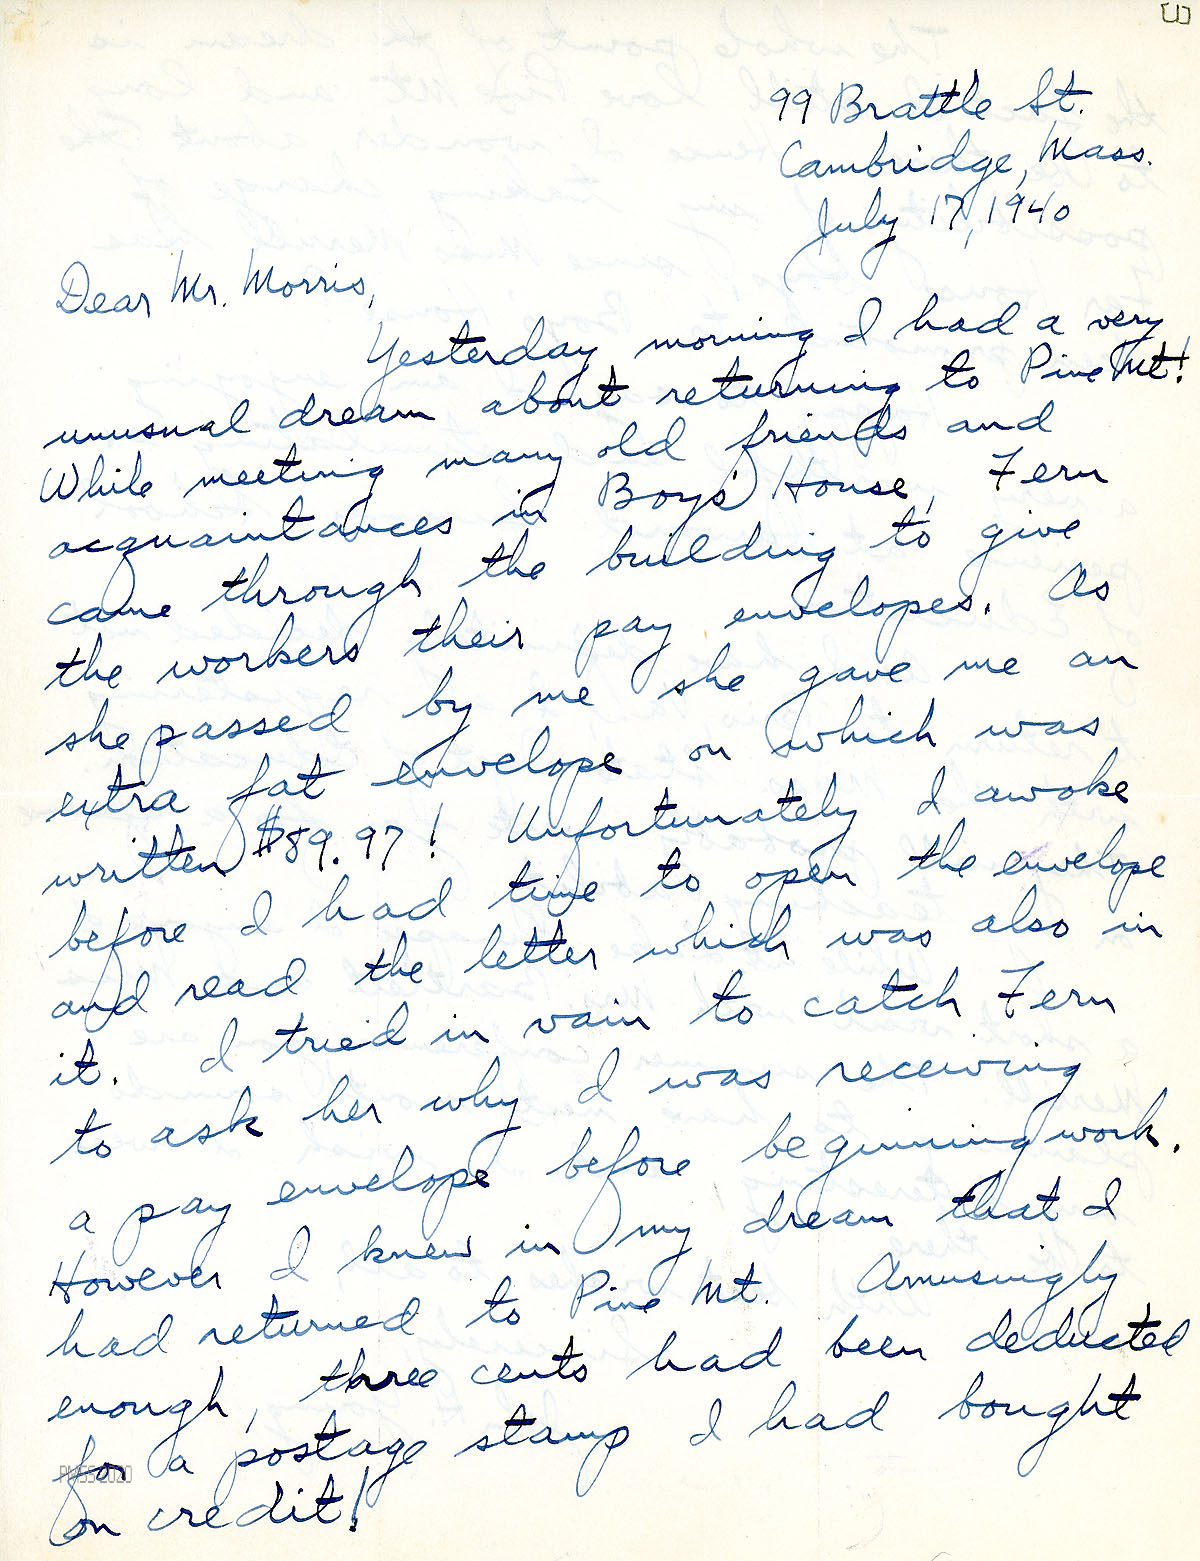 99 Brattle St.
Cambridge, Mass.
July 17, 1940
Dear Mr. Morris,
Yesterday morning I had a very
unusual dream about returning to Pine Mt!
While meeting many old friends and
acquaintances in Boys' House, Fern
came through the building to give
the workers their pay envelopes. As
she passed by me she gave me an
extra fat envelope on which was
written $89.97! Unfortunately I awoke
before I had time to open the envelope
and read the letter which was also in
it. I tried in vain to catch Fern
to ask her why I was receiving
a pay envelope before beginning work.
However I knew in my dream that I
had returned to Pine Mt. Amusingly
enough, three cents had been deducted
for a postage stamp I had bought
on credit!
PMSS 2020